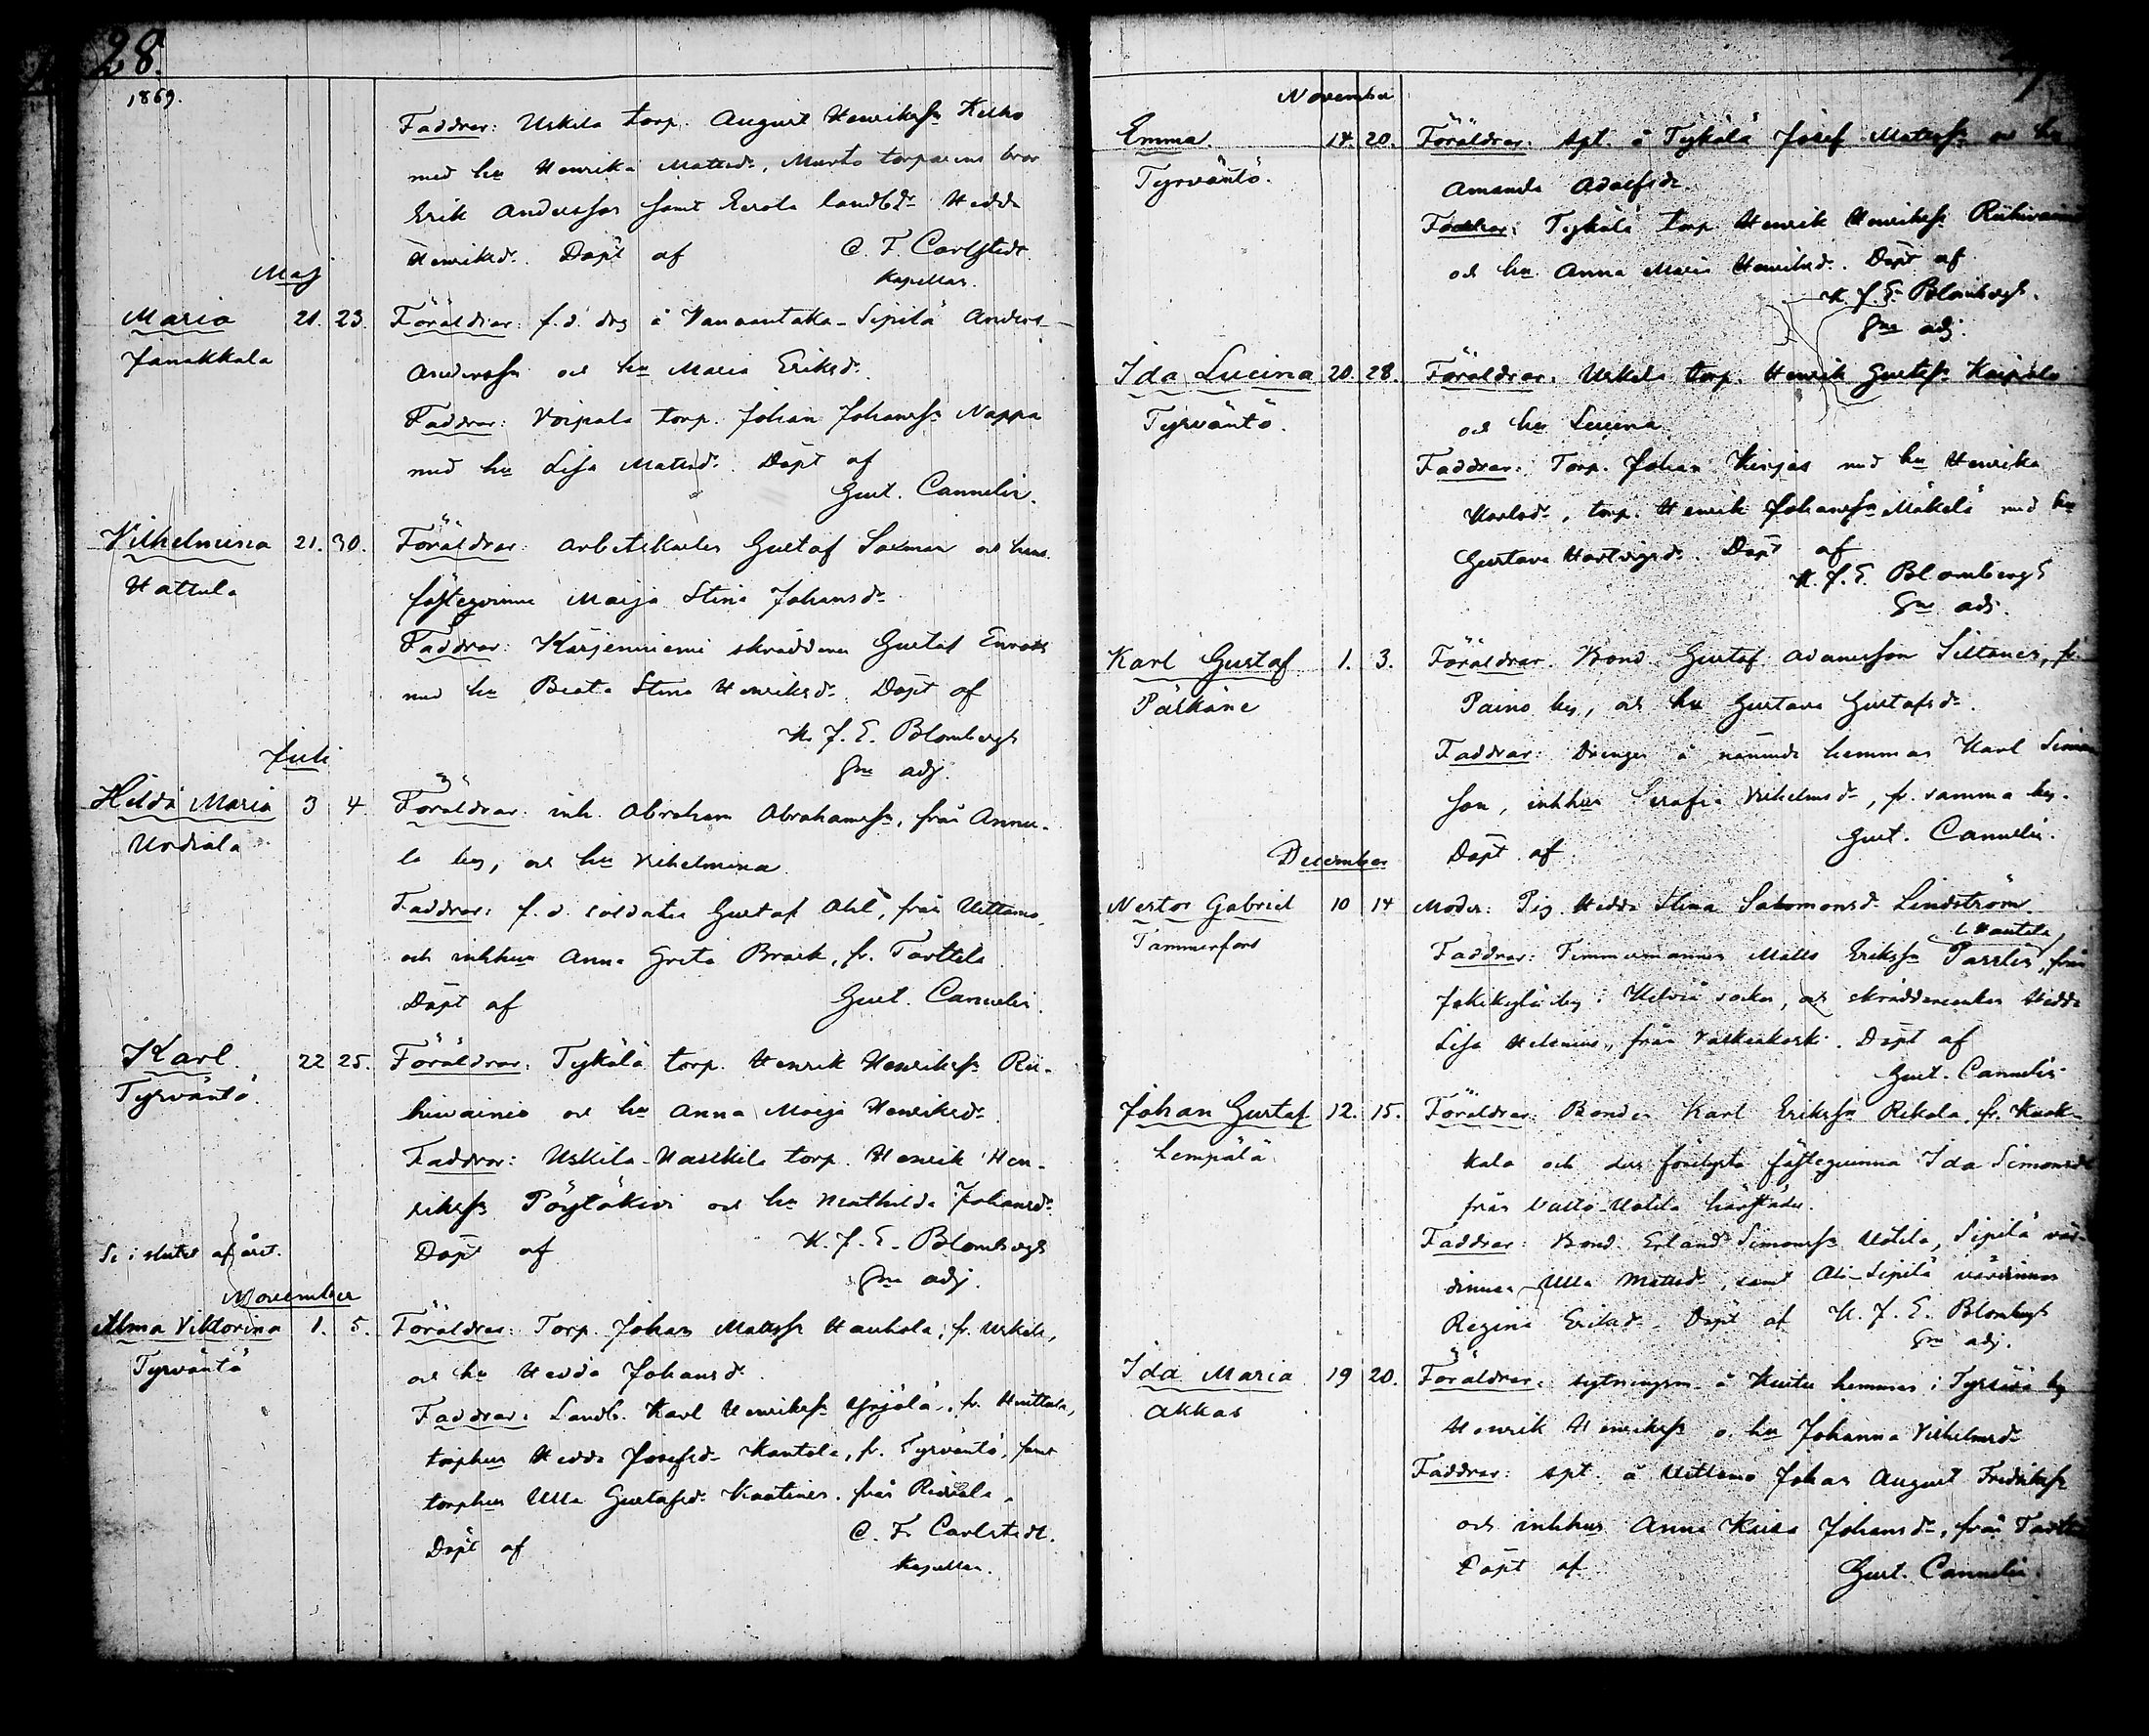 28.
1869.
Faddrar: Uskila torp. August Henrikss Kelho
med hu Henrika Mattsd., Murto torparens bror
Erik Andersson samt Eerola landbd Hedda
Henriksd. Döpt af C. F. Carlstedt
Kapellan.
Maj
Maria 21. 23. Föräldrar: f.d. drg å Vanaantaka-Sipilä Anders
Janakkala
Anderss och hu Maria Eriksd.
Faddrar: Voipala torp. Johan Johanss Nappa
med hu Lisa Mattsd. Döpt af
Gust. Cannelin.
Vilhelmina 21. 30. Föräldrar: arbetskarlen Gustaf Salman och hans
Hattula
fästeqvinna Maija Stina Johansd
Faddrar: Karjenniemi skräddaren Gustaf Enroth
med hu Beata Stina Henriksd. Döpt af
K. J. E. Blombergh
Gne adj.
Juli
Hilda Maria 3 4. Föräldrar: inh. Abraham Abrahamss, från Annu-
Urdiala
la by, och hu Vilhelmina.
Faddrar: f. d. soldaten Gustaf Ahl, från Uittamo,
och inhhun Anna Greta Brask, fr. Tarttila
Döpt af Gust. Cannelin.
Karl 22 25. Föräldrar: Tykälä torp. Henrik Henrikss Rii-
Tyrväntö.
hivainio och hu Anna Maija Henriksd.
Faddrar: Uskila-Uasskila torp. Henrik Hen-
rikss Pöytäkivi och hu Mathilda Johansd.
Döpt af K. J. E. Blombergh
Gne adj.
Se i slutet af året.
November
Alma Viktorina 1. 5. Föräldrar: Torp. Johan Mattss Hauhola, fr. Uskila,
Tyrväntö
och hu Hedda Johansd.
Faddrar: Landb. Karl Henrikss Yrjölä, fr. Huittula,
torphun Hedda Josefsd. Kantola, fr. Tyrväntö, samt
torphun Ulla Gustafsd. Kaatinen, från Ridvala.
Döpt af C. F. Carlstedt.
Kapellan.
November
Emma. 14. 20. Föräldrar: spt. å Tykälä Josef Mattss och hu
Tyrväntö.
Amanda Adolfsd.
Faddrar: Tykälä torp Henrik Henrikss Riihivainio
och hu Anna Maria Henriksd. Döpt af
K. J. E. Blombergh.
Gne adj.
Ida Lucina 20. 28. Föräldrar: Uskila torp. Henrik Gustafs Kaipala
Tyrväntö.
och hu Lucina
Faddrar: Torp. Johan Kirjas med hu Henrika
Karlsd., torp. Henrik Johanss Mäkelä med hu
Gustava Hartvigsd. Döpt af
K. J. E. Blombergh
Gne adj.
Karl Gustaf 1. 3. Föräldrar. Bond. Gustaf Adamsson Siltanen, fr.
Pälkäne
Paino by, och hu Gustava Gustafsd.
Faddrar: Drengen å nämnde hemman Karl Simon
son, inhhun Serafia Vilhelmsd, fr. samma by.
Döpt af Gust. Cannelin.
December
Nestor Gabriel 10 14 Moder: Pig. Hedda Stina Salomonsd. Lindström
Tammerfors
Faddrar: Timmermannen Matts Erikss Parrlin, från
Jokikylä by i Kelviå socken, och skräddareenkan Hedda
Lisa Helenius, från Valkeakoski. Döpt af
Gust. Cannelin.
Johan Gustaf 12. 15. Föräldrar: Bonden Karl Erikss Rekola, fr. Kuok-
Lempälä
kala och dess förelysta fästeqvinna Ida Simonsd
från Vallo-Uotila härstädes.
Faddrar: Bond. Erland Simonss Uotila, Sipilä vär-
dinnan Ulla Mattsd., samt Ali-Sipilä värdinnan
Regina Eriksd. Döpt af K. J. E. Blombergh
Gne adj.
Ida Maria 19 20. Föräldrar: sytningsm. å Kuitu hemman i Tyrisevä by
Akkas
Henrik Henrikss o. hu Johanna Vilhelmsd
Faddrar: spt. å Uittamo Johan August Fredrikss
och inhhun Anna Kaisa Johansd., från Tarttila
Döpt af Gust. Cannelin.